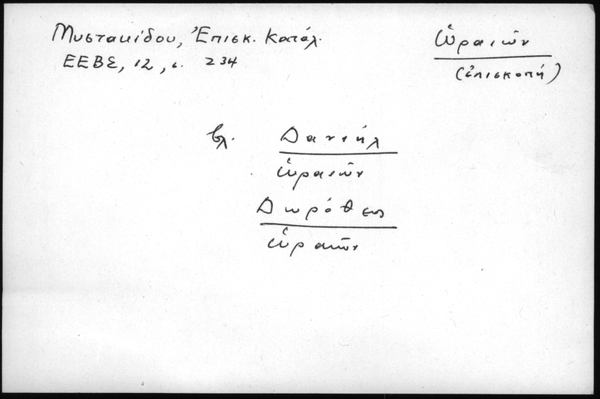 Μυστακίδου, Ἐπισκ. Κατάλ.
ΕΕΒΣ, 12, σ. 234
Ὡραιῶν
(ἐπισκοπή)
βλ. Δανιήλ
Ὡραιῶν
Δωρόθεος
Ὡραιῶν